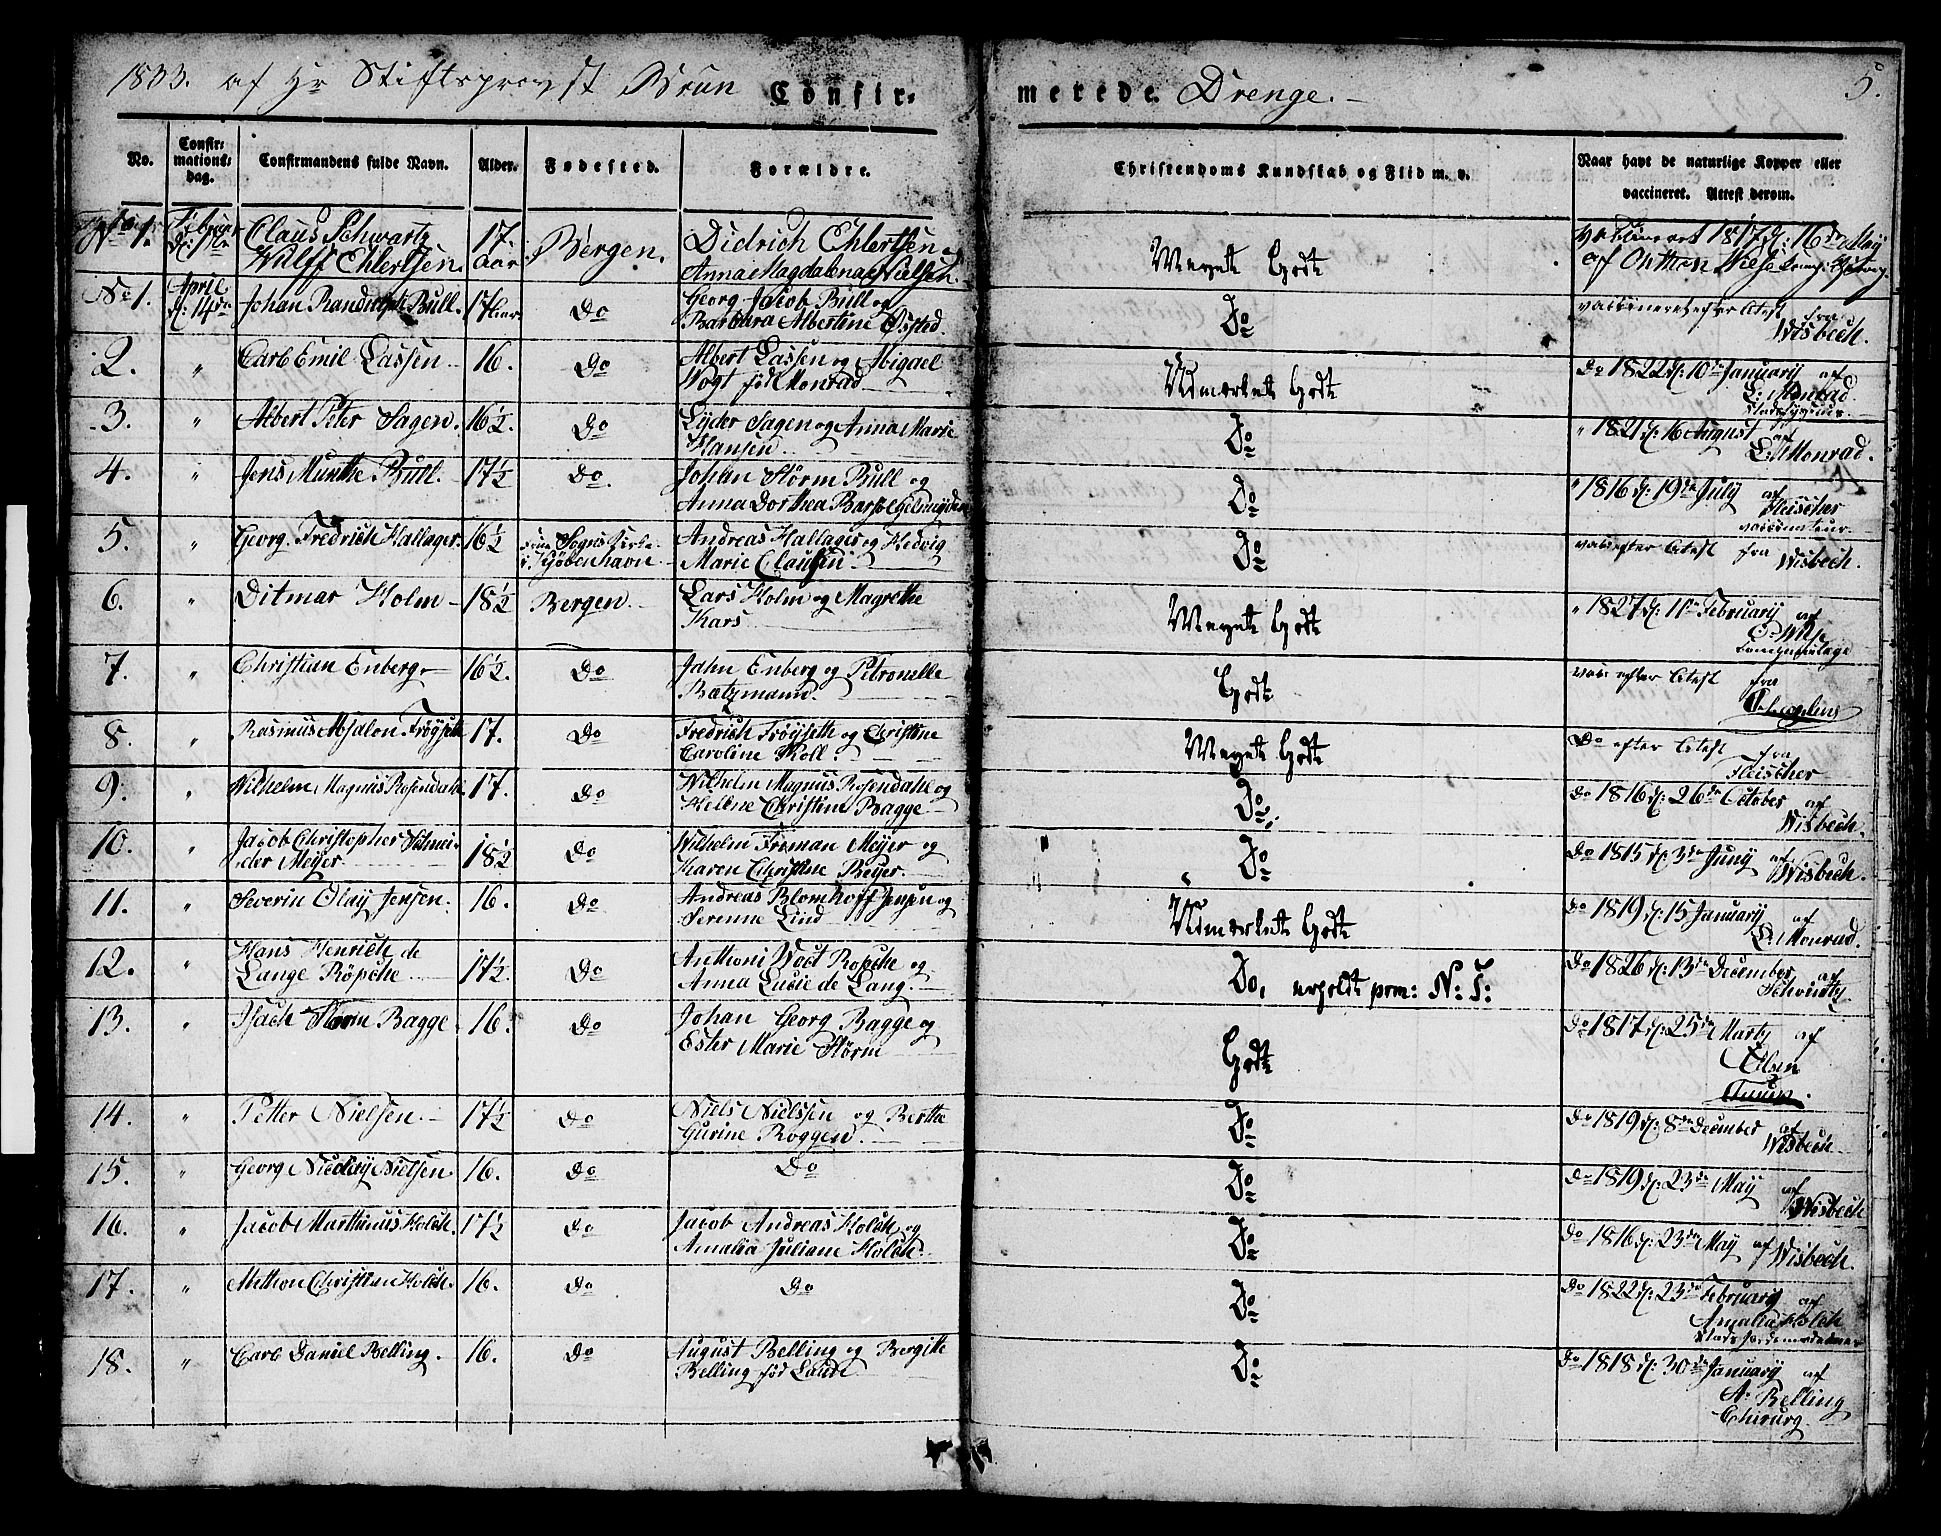 1833. af Hr Stiftsprovst Brun Confir- merede Drenge. 5.
No. Confirmations-dag. Confirmandens fulde Navn. Alder. Fødested. Forældre. Christendoms Kundskab og Flid m. v. Naar havt de naturlige Kopper eller vaccineret. Attest derom.
No 1. Claus Schwartz 17 Bergen. Didrich Ehlertsen
Wulff Ehlertsen. Aar Anna Magdalena Nielsen. Meget Godt
No 1. April d: 14de Johan Randulph Bull. 17 Aar Do Georg Jacob Bull og Do vaccineret efter Atest fra
Barbara Albertine Østed. Wisbech.
2. " Carl Emil Lassen 16. Do Albert Lassen og Abigael Udmerket Godt Do 1822 d: 10de January af
Vogt fød Monrad L: Monrad.
3. " Albert Peter Sagen. 16½. Do Lyder Sagen og Anna Marie Do " 1821 d: 16 August af
Hansen L: Monrad.
4. " Jens Munthe Bull. 17½ Do. Johan Størm Bull og Do " 1816 d: 19de July af
Anna Dorthea Fleischer
vaccinateur
5. " Georg Fredrich Hallager. 16½ Sogns Kirke Andreas Hallager og Hedvig Do vac: efter Atest fra
i Kjøbenhavn Marie Clausen Wisbech.
6. " Ditmar Holm 18½ Bergen. Lars Holm og Magrethe Meget Godt " 1827 d: 11te February af
Kars
7. " Christian Enberg 16½. Do Jahn Enberg og Petronelle Godt vac: efter Atest fra
Batzmann.
8. " Rasmus Absalon Frøyseth 17. Do Fredrich Frøyseth og Christine Meget Godt Do efter Atest fra
Caroline Koll. Fleischer
9. " Wilhelm Magnus Rosendahl. 17. Do Wilhelm Magnus Rosendahl og Do. Do 1816 d: 26de October af
Hellene Christine Bagge Wisbech.
10. " Jacob Christopher Schnei- 18½ Do Wilhelm Friman Meyer og Do Do 1815 d: 3de Juny af
der Meyer Karen Christine Beyer. Wisbech.
11. " Severin Olay Jensen. 16. Do Andreas Blomhoff Jensen og Udmerket Godt Do 1819 d: 15 January af
Serenne Lind L: Monrad.
12. " Hans Henrich de 17½. Do Anthoni Woct Ropche og Do. Do 1826 d: 13de December af
Lange Röpche Anna Lucie de Lang.
13. " Isach Størm Bagge 16. Do Johan Georg Bagge og Godt Do 1817 d: 25de Marty af
Ester Marie Størm Olsen
14. " Petter Nielsen. 17½ Do Niels Nielssen og Berthe Do Do 1819 d: 8de December af
Gurine Roggen. Wisbech
15. " Georg Nicolay Nielsen 16. Do Do Do Do 1819 d: 23de May af
Wisbech
16. " Jacob Marthinus Holch. 17½ Do Jacob Andreas Holch og Do Do 1816 d: 23de May af
Amalia Juliane Holch. Wisbech.
17. " Milthon Christian Holch. 16. Do Do Do Do 1822 d: 23de February af
Amalia Holch
18. " Carl Daniel Belling. 16. Do August Belling og Bergitte Do Do 1818 d: 30de January af
Belling fød Laude A: Belling
Chirurg